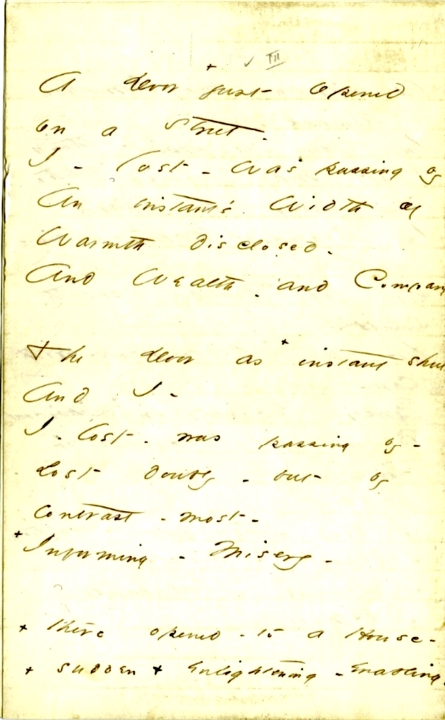 + ✓ III
A door just opened
on a Street.
I - lost - was passing by
An instant's Width of
Warmth disclosed.
And Wealth. and Compan
The door as + instant shut
And I -
I - lost - was passing by -
Lost doubly - but by
Contrast - most -
+ Informing - Misery -
+ there opened - to a House -
+ sudden + Enlightening - Enabling.